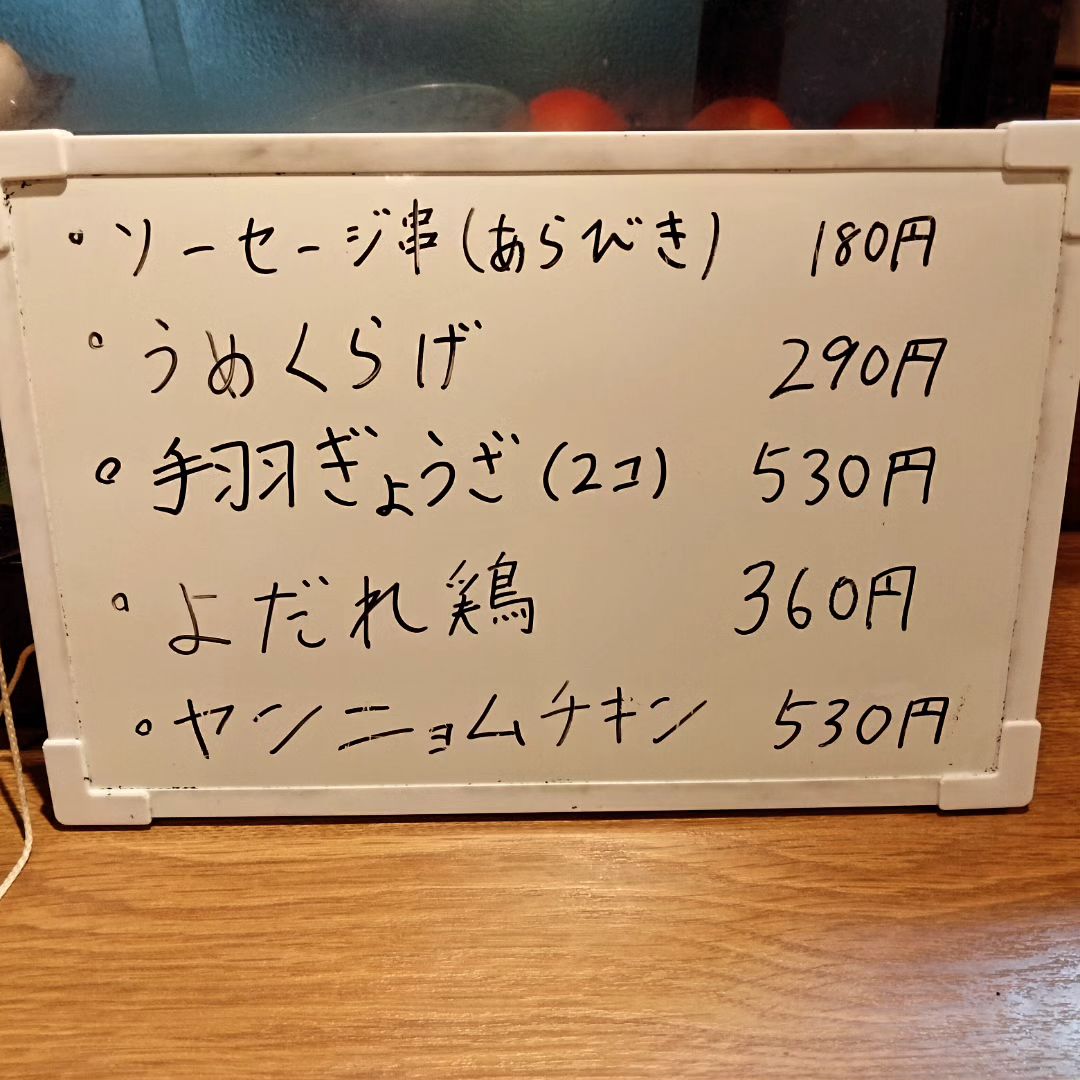 ・ソーセージ串(あらびき) 180円
・うめくらげ 290円
・手羽ぎょうざ(2コ) 530円
・よだれ鶏 360円
・ヤンニョムチキン 530円